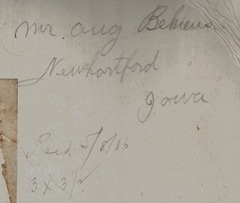 Mr. Aug Behrens
Newhartford
Iowa
Recd 5/8/16
3 x 3 1/2